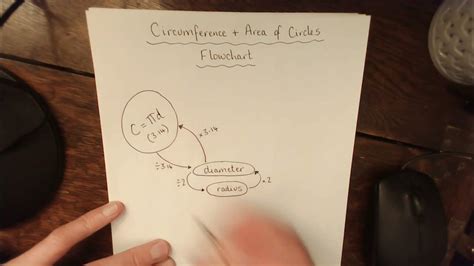 Circumference + Area of Circles
Flowchart
C = πd
(3·14)
×3·14
÷3·14
diameter
÷2
×2
radius